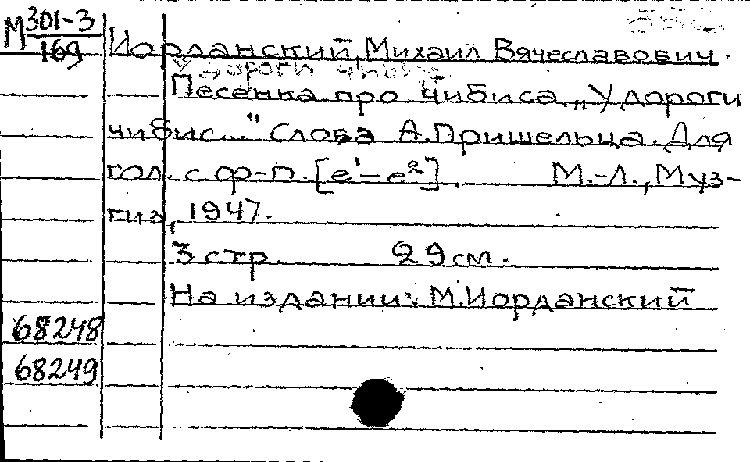 М 301-3
169
Иорданский, Михаил Вячеславович.
Песенка про чибиса „У дороги
чибис..." Слова А.Пришельца. Для
гол. с ф-п. [e¹-e²]. М.-Л., Муз-
гиз, 1947.
3 стр. 29 см.
На издании: М.Иорданский
68248
68249